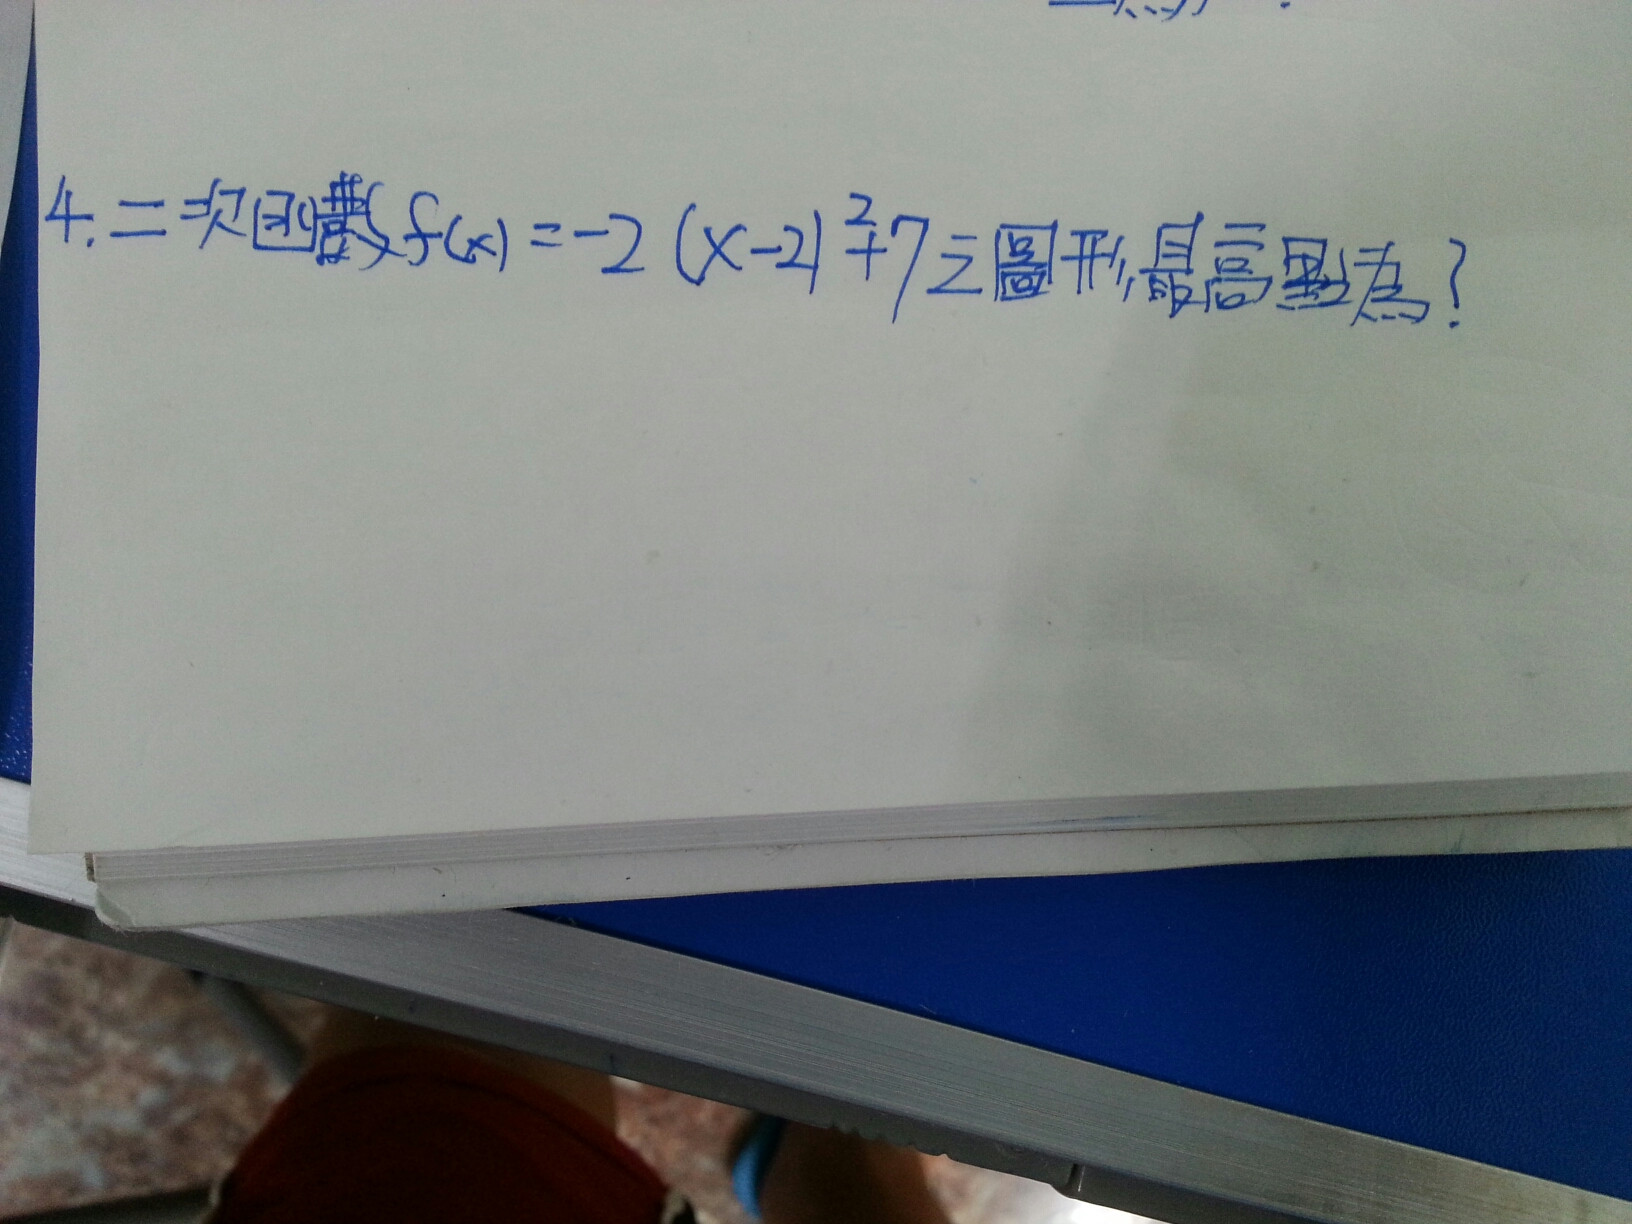 4.二次函數f(x)=-2(x-2)²+7之圖形,最高點為?